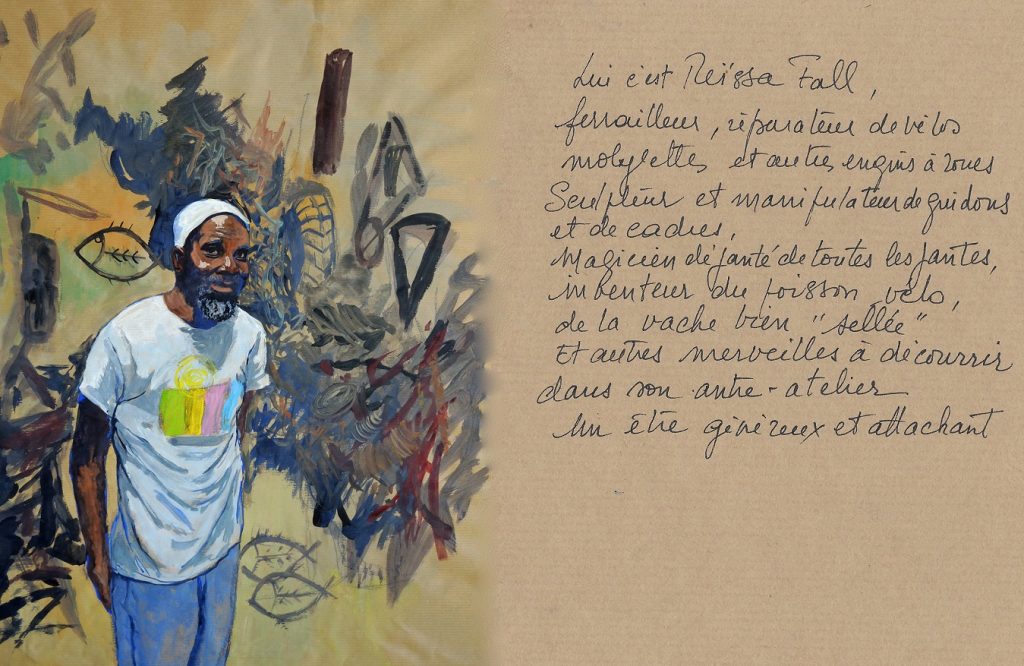 Lui c'est Meïssa Fall,
ferrailleur, réparateur de vélos
mobylettes et autres engins à roues
Sculpteur et manipulateur de guidons
et de cadres,
Magicien déjanté de toutes les jantes,
inventeur du poisson vélo,
de la vache bien "sellée"
Et autres merveilles à découvrir
dans son antre-atelier
Un être généreux et attachant